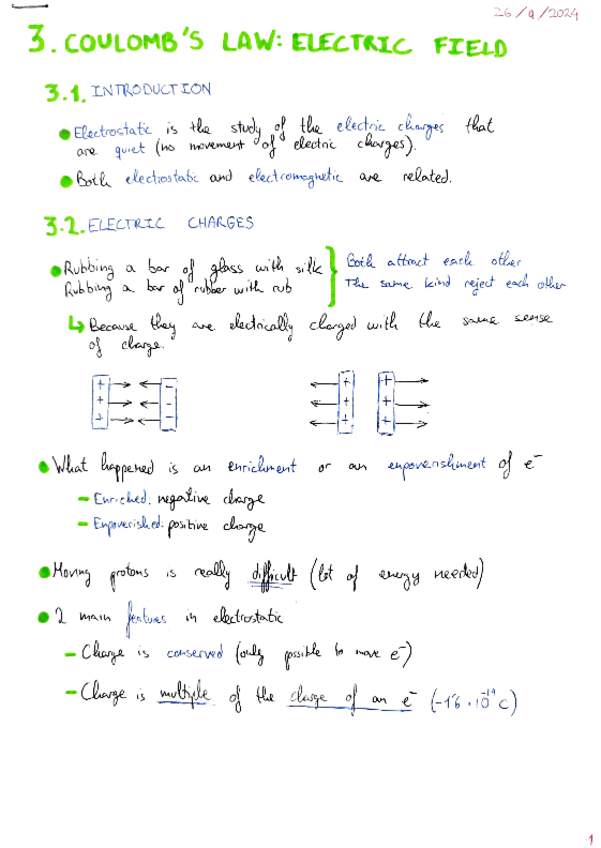 26/9/2024
3. COULOMB'S LAW: ELECTRIC FIELD
3.1. INTRODUCTION
Electrostatic is the study of the electric charges that
are quiet (no movement of electric charges).
Both electrostatic and electromagnetic are related.
3.2. ELECTRIC CHARGES
Rubbing a bar of glass with silk
Rubbing a bar of rubber with rub
Both attract each other
The same kind reject each other
Because they are electrically charged with the same sense
of charge.
+ - + +
+ - + +
+ - + +
What happened is an enrichment or an enpoverishment of e⁻
- Enriched: negative charge
- Enpoverished: positive charge
Moving protons is really difficult (lot of energy needed)
2 main features in electrostatic
- Charge is conserved (only possible to move e⁻)
- Charge is multiple of the charge of an e⁻ (-1'6 · 10⁻¹⁹ C)
1